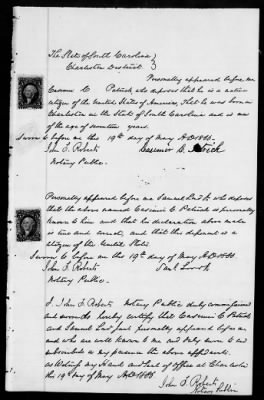 The State of South Carolina
Charleston District
Personally appeared before me
Casimir C Patrick who deposes that he is a native
citizen of the United States of America, that he was born in
Charleston in the State of South Carolina and is now
of the age of seventeen years.
Sworn to before on this 19th day of May AD 186
John F. Roberts Casimir C. Patrick
Notary Public.
Personally appeared before me Samuel Lord Jr. who deposes
that the above named Casimir C Patrick is personally
known to him and that his declaration above made
is true and correct, and that this deponent is a
citizen of the United States
Sworn to before on this 19th day of May AD 186
John F. Roberts Saml Lord Jr
Notary Public.
I John F. Roberts Notary Public duly commissioned
and sworn do hereby certify that Casimir C Patrick
and Samuel Lord Junr personally appeared before me
and who are well known to me and duly swore to and
subscribed in my presence the above affidavits.
Witness my Hand and Seal of office at Charleston
this 19th day of May AD 186
John F. Roberts
Notary Public